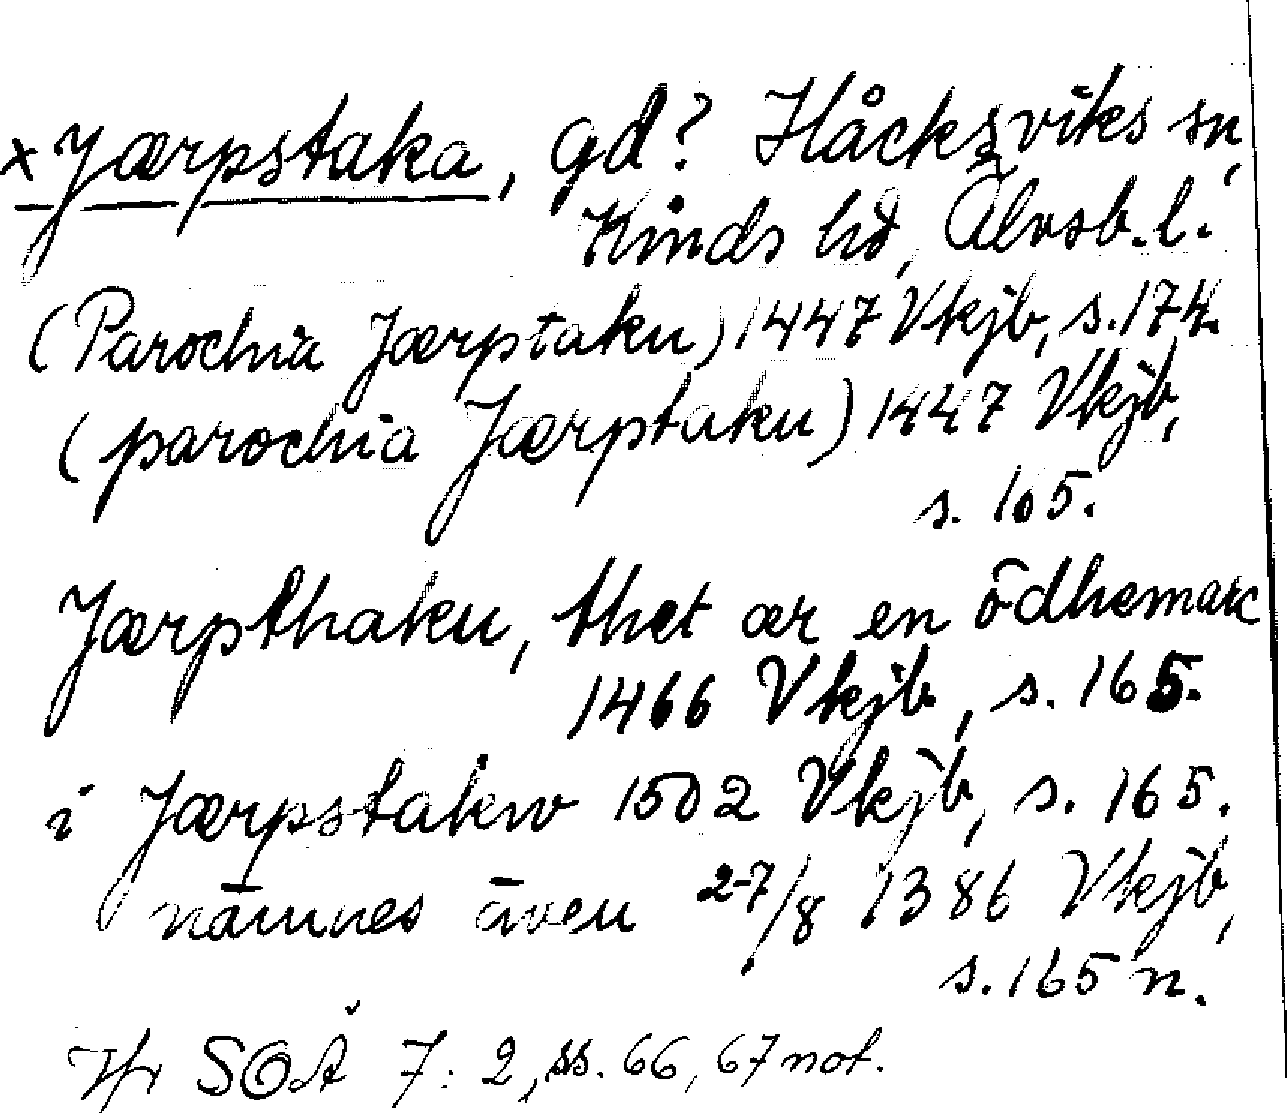 × Jærpstaka, gd? Håcksviks sn,
Kinds hd, Älvsb. l.
(Parochia Jærptaku) 1447 Vkjb, s. 174.
(parochia Jærptaku) 1447 Vkjb,
s. 165.
Jærpthaku, thet ær en ödhemarc
1466 Vkjb, s. 165.
i Jærpstakw 1502 Vkjb, s. 165.
nämnes även 2-7/8 1386 Vkjb,
s. 165 n.
Jfr SOÄ 7: 2, ss. 66, 67 not.